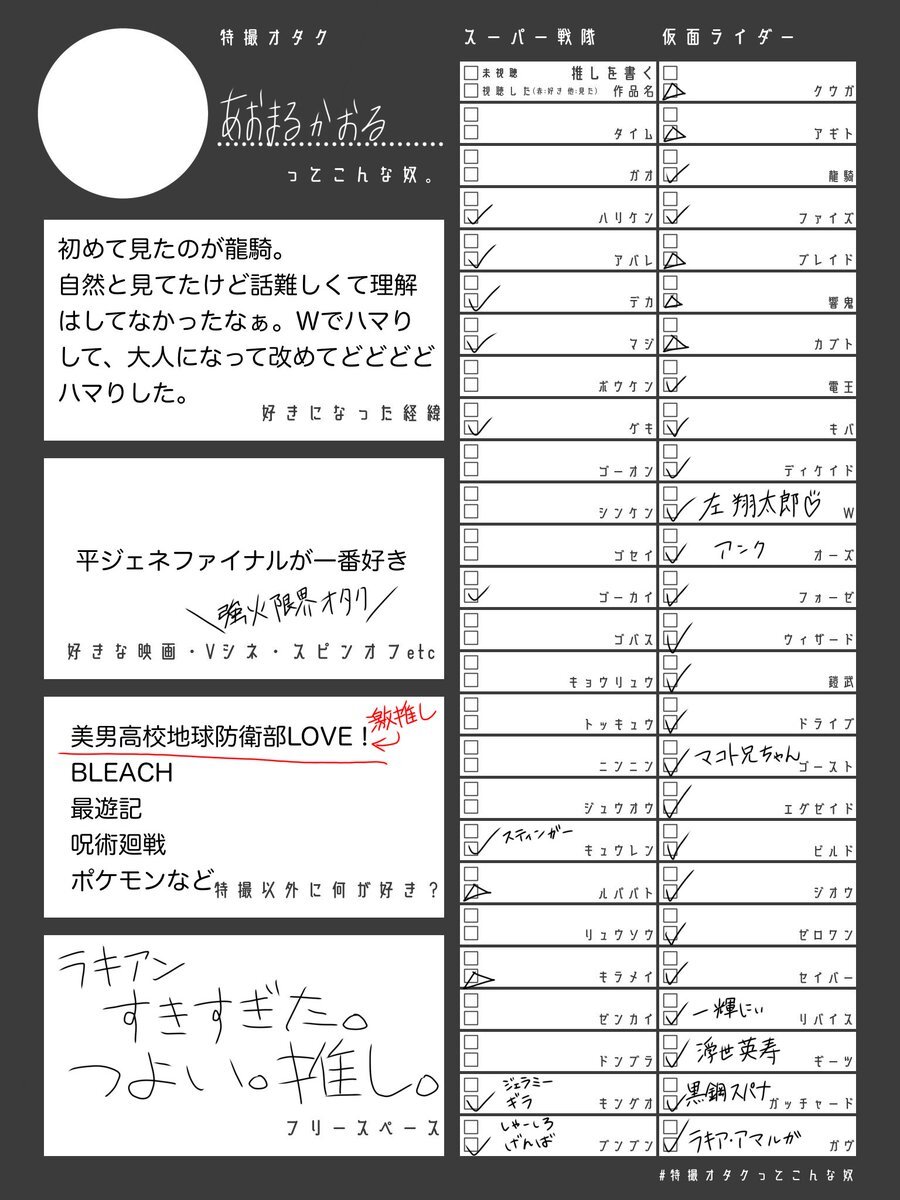 特撮オタク
あおまるかおる
ってこんな奴。
初めて見たのが龍騎。
自然と見てたけど話難しくて理解
はしてなかったなぁ。Wでハマり
して、大人になって改めてどどどど
ハマりした。
好きになった経緯
平ジェネファイナルが一番好き
＼強火限界オタク／
好きな映画・Vシネ・スピンオフetc
美男高校地球防衛部LOVE！
激推し
BLEACH
最遊記
呪術廻戦
ポケモンなど
特撮以外に何が好き？
ラキアン
すきすぎた。
つよい。推し。
フリースペース
スーパー戦隊
未視聴 推しを書く
視聴した(赤:好き 他:見た) 作品名
タイム
ガオ
ハリケン
アバレ
デカ
マジ
ボウケン
ゲキ
ゴーオン
シンケン
ゴセイ
ゴーカイ
ゴバス
キョウリュウ
トッキュウ
ニンニン
ジュウオウ
スティンガー
キュウレン
ルパパト
リュウソウ
キラメイ
ゼンカイ
ドンブラ
ジェラミー
ギラ
キングオ
しゃーしろ
げんば
ブンブン
仮面ライダー
クウガ
アギト
龍騎
ファイズ
ブレイド
響鬼
カブト
電王
キバ
ディケイド
左 翔太郎♡ W
アンク オーズ
フォーゼ
ウィザード
鎧武
ドライブ
マコト兄ちゃん ゴースト
エグゼイド
ビルド
ジオウ
ゼロワン
セイバー
一輝にぃ リバイス
浮世英寿 ギーツ
黒鋼スパナ ガッチャード
ラキア・アマルガ ガヴ
#特撮オタクってこんな奴